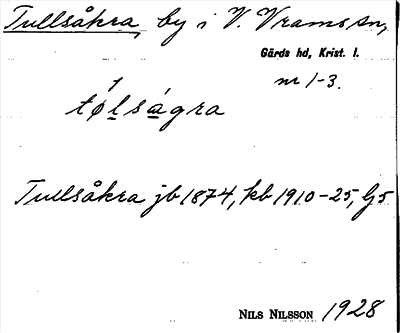 Tullsåkra, by i V. Vrams sn,
Gärds hd, Krist. l.
nr 1-3.
tølságra
Tullsåkra jb 1874, kb 1910-25, Gj 5
NILS NILSSON 1928